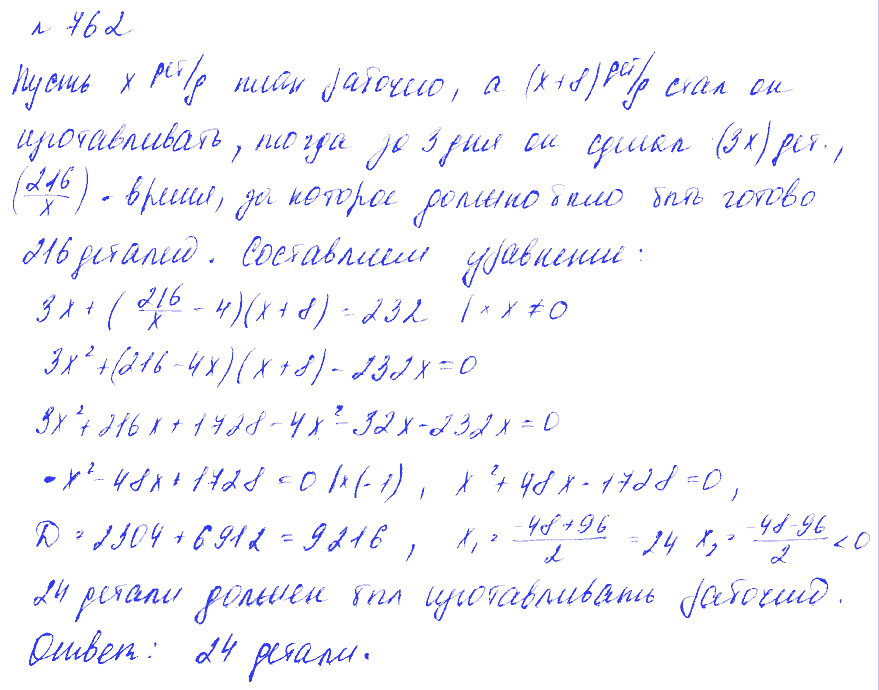 № 762
Пусть x дет/д план рабочего, а (x+8) дет/д стал он
изготавливать, тогда за 3 дня он сделал (3x) дет.,
(216/x) - время, за которое должно было быть готово
216 деталей. Составляем уравнение:
3x + (216/x - 4)(x+8) = 232 | × x ≠ 0
3x² + (216 - 4x)(x+8) - 232x = 0
3x² + 216x + 1728 - 4x² - 32x - 232x = 0
-x² - 48x + 1728 = 0 | × (-1) , x² + 48x - 1728 = 0 ,
D = 2304 + 6912 = 9216 , x₁ = (-48+96)/2 = 24 x₂ = (-48-96)/2 < 0
24 детали должен был изготавливать рабочий.
Ответ: 24 детали.